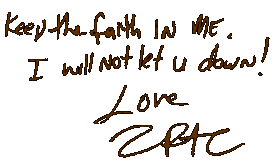 Keep the faith IN ME.
I will not let u down!
Love